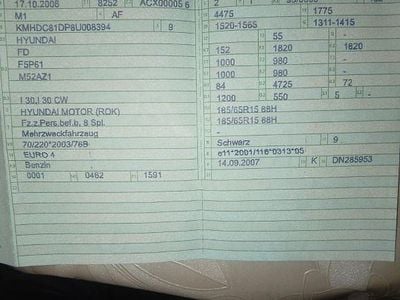 17.10.2006 8252 ACX00005 6
M1 AF
KMHDC81DP8U008394 9
HYUNDAI
FD
F5P61
M52AZ1
I 30,I 30 CW
HYUNDAI MOTOR (ROK)
Fz.z.Pers.bef.b. 8 Spl.
Mehrzweckfahrzeug
70/220*2003/76B
EURO 4
Benzin
0001 0462 1591
4475 1775
1520-1565 1311-1415
- 55 -
152 1820 1820
1000 980 -
1000 980 -
84 4725 72
1200 550 5 -
185/65R15 88H
185/65R15 88H
-
-
Schwarz 9
e11*2001/116*0313*05
14.09.2007 K DN285953